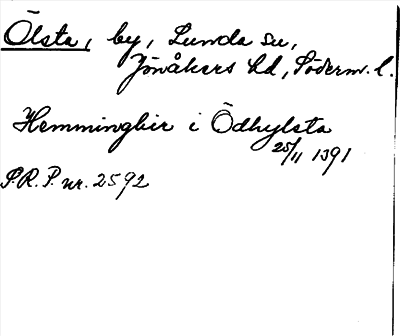 Ölsta, by, Lunda sn,
Jönåkers hd, Söderm. l.
Hemmingher i Ödhylsta
25/11 1391
S.R.P. nr. 2592